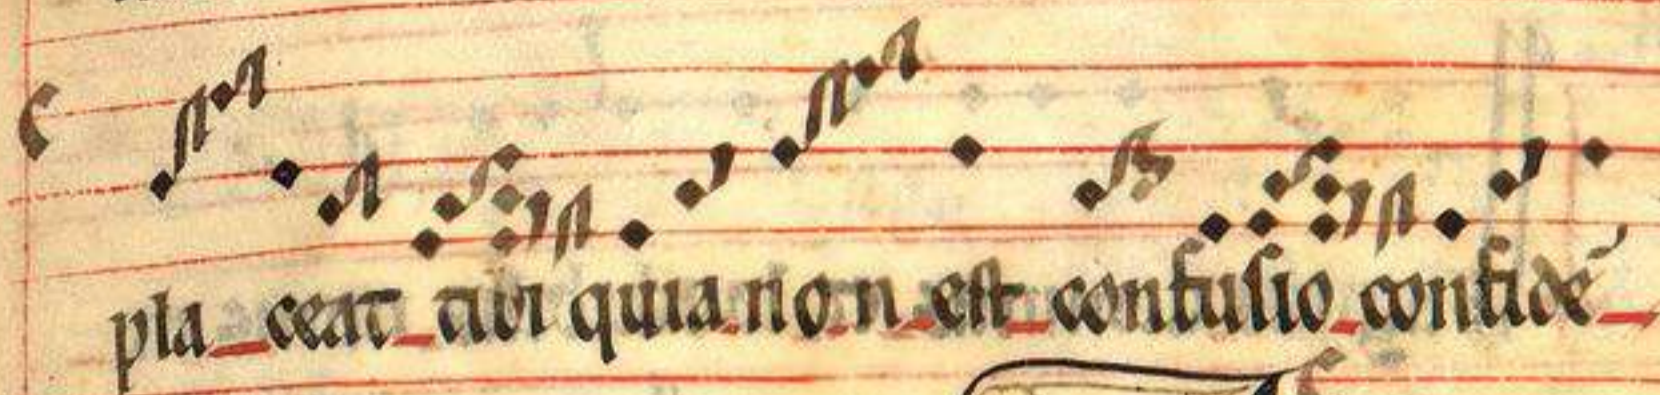 pla_ceat_tibi quia non_est_confusio_confidē_